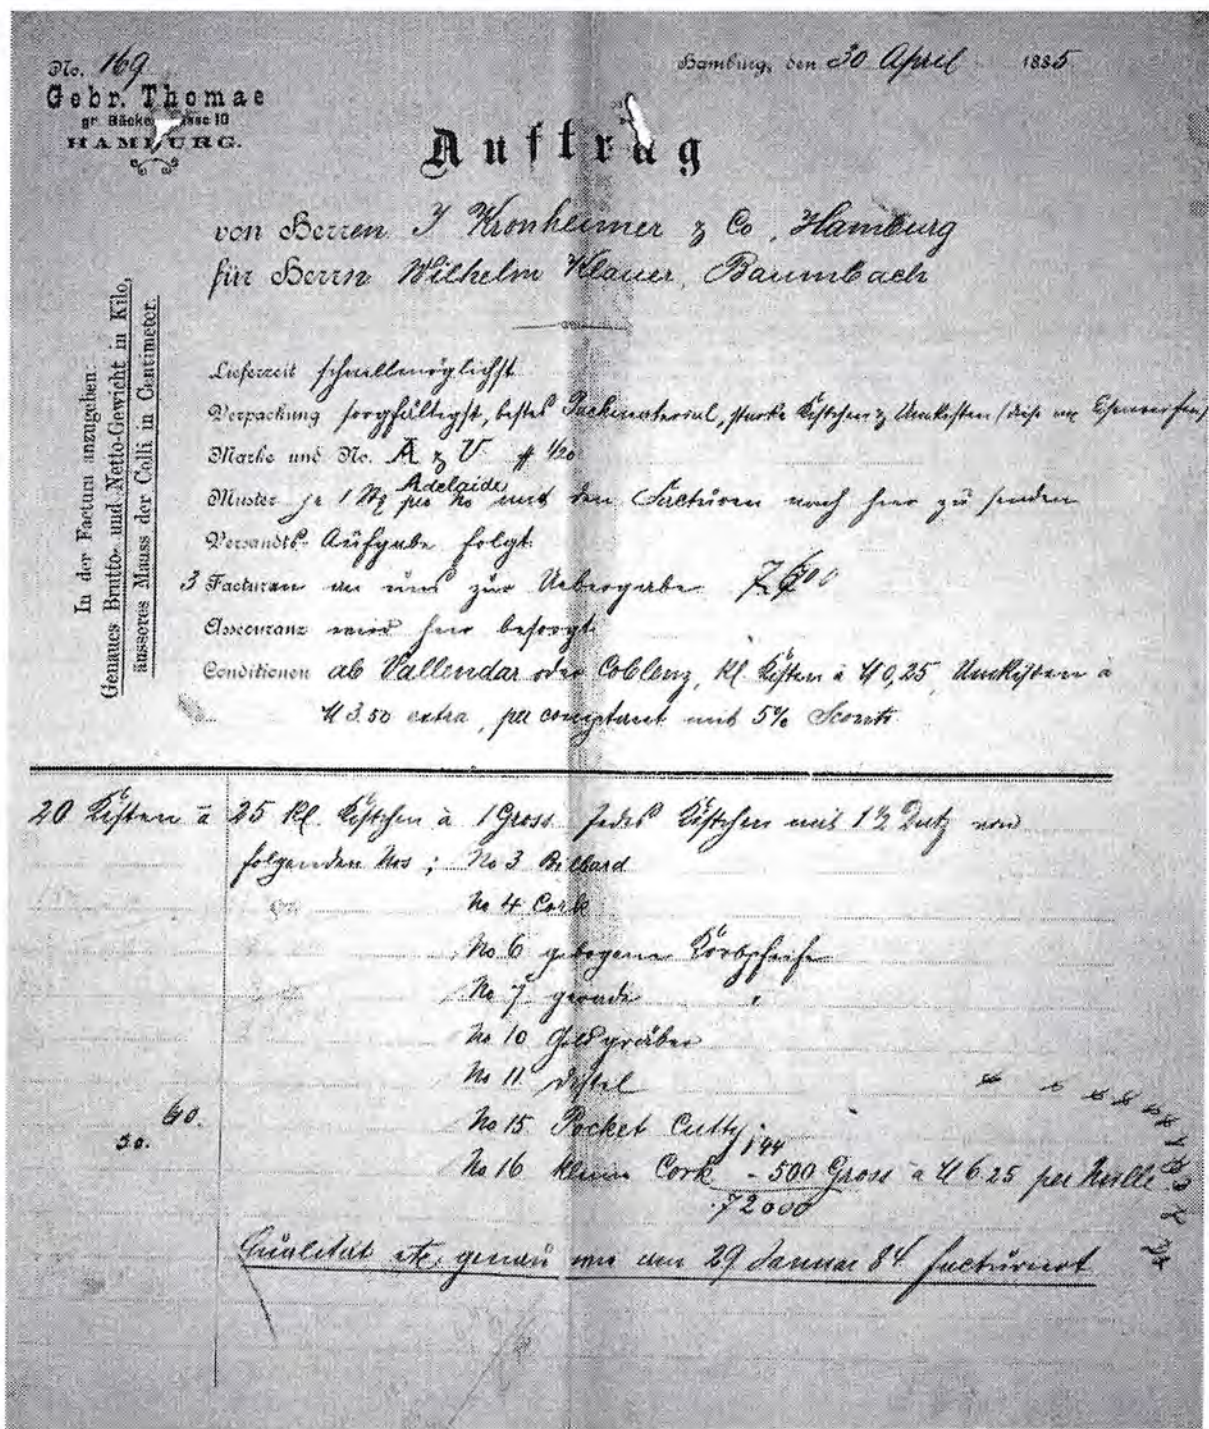 No. 169
Gebr. Thomae
gr. Bäcke sse 10
HAMBURG.
Hamburg, den 30 April 1885
Auftrag
von Herren J Kronheimer & Co, Hamburg
für Herrn Wilhelm Klauer, Baumbach
In der Factura anzugeben:
Genaues Brutto- und Netto-Gewicht in Kilo,
äusseres Maass der Colli in Centimeter.
Lieferzeit schnellmöglichst
Verpackung sorgfältigst, bestes Packmaterial, starke Kistchen & Umkisten (diese Eisenreifen)
Marke und No. A & V # 1/20
Adelaide
Muster je 1 per No mit den Facturen nach hier zu senden
Versandts-Aufgabe folgt.
3 Facturen an uns zur Uebergabe
Assecuranz wird hier besorgt.
Conditionen ab Vallendar oder Coblenz, kl. Kisten à M 0,25, Umkisten à
M 3.50 extra, per comptant mit 5% Sconto
20 Kisten à 25 kl. Kistchen à 1 Gross. Jedes Kistchen mit 1½ Dutz von
folgenden Nos: No 3 Billard
No 4 Cork
No 6 gebogene Korbpfeife
No 7 gerade "
No 10 Goldgräber
No 11 Distel
60.
30.
No 15 Pocket Cutty
144
No 16 kleine Cork - 500 Gross à M 6.25 per Mille
72000
Qualität etc. genau wie am 29 Januar 84 facturiert